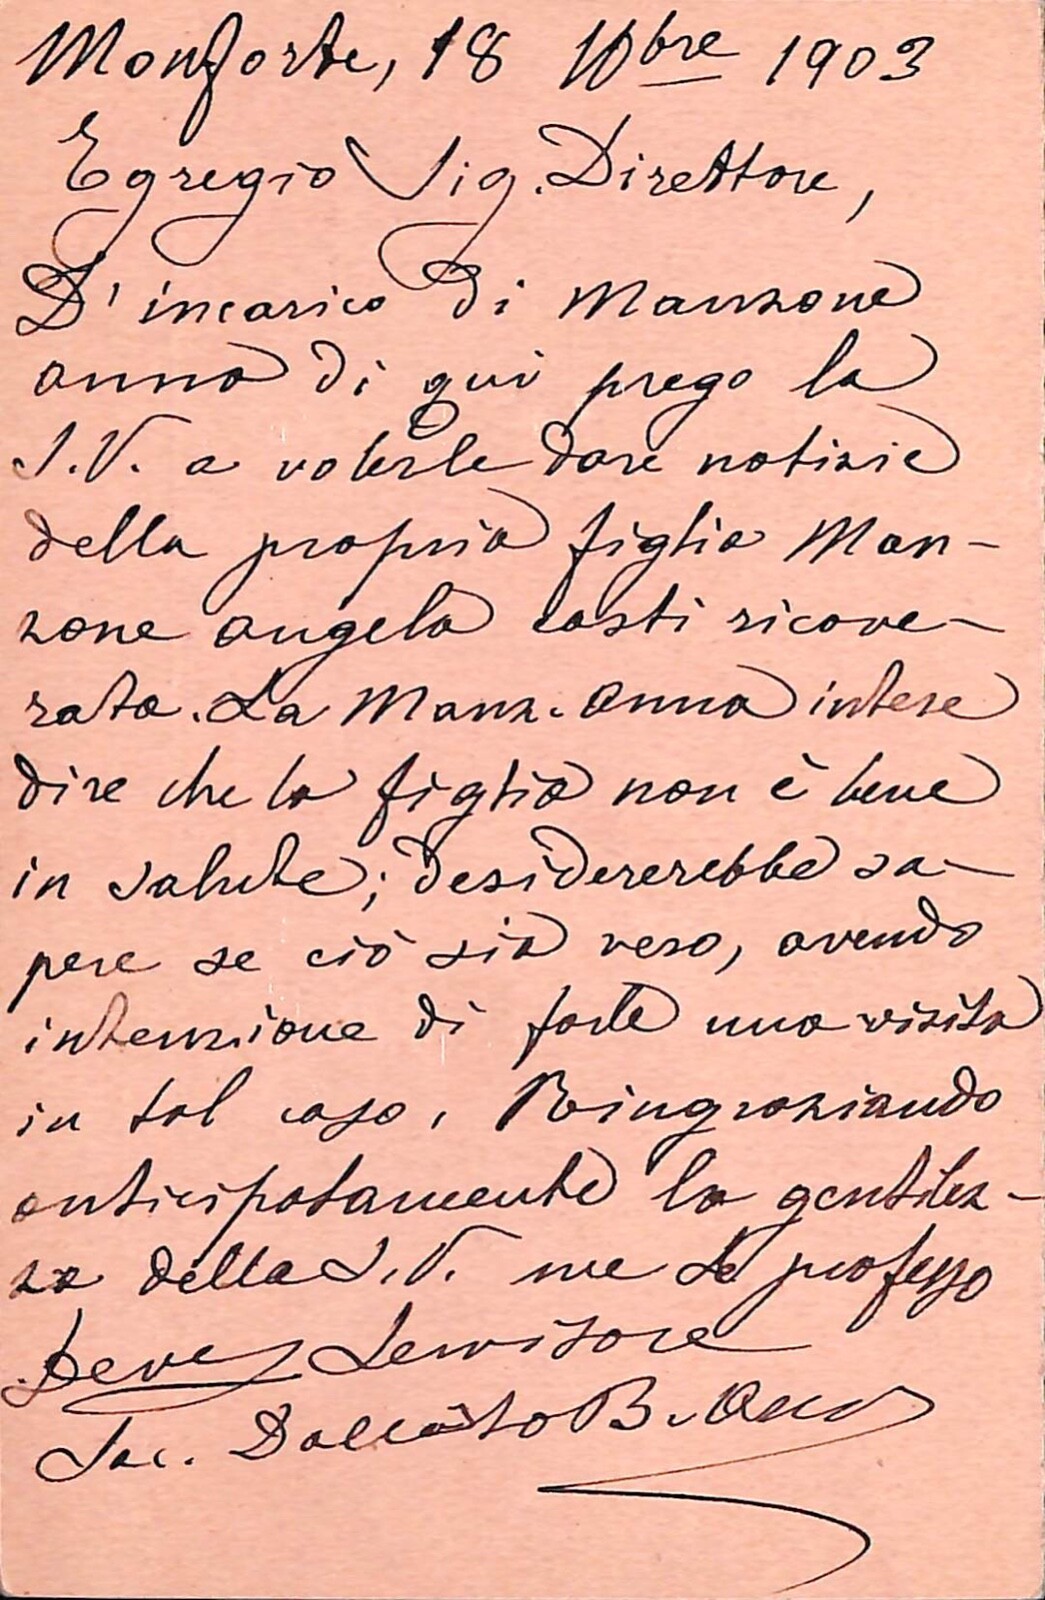 Monforte, 18 10bre 1903
Egregio Sig. Direttore,
D'incarico di Manzone
Anna di qui prego la
S.V. a volerle dare notizie
della propria figlia Man-
zone Angela costì ricove-
rata. La Manz. Anna intese
dire che la figlia non è bene
in salute; desidererebbe sa-
pere se ciò sia vero, avendo
intenzione di farle una visita
in tal caso. Ringraziando
anticipatamente la gentilez-
za della S.V. me Le professo
Dev. Servitore
Sac. B.